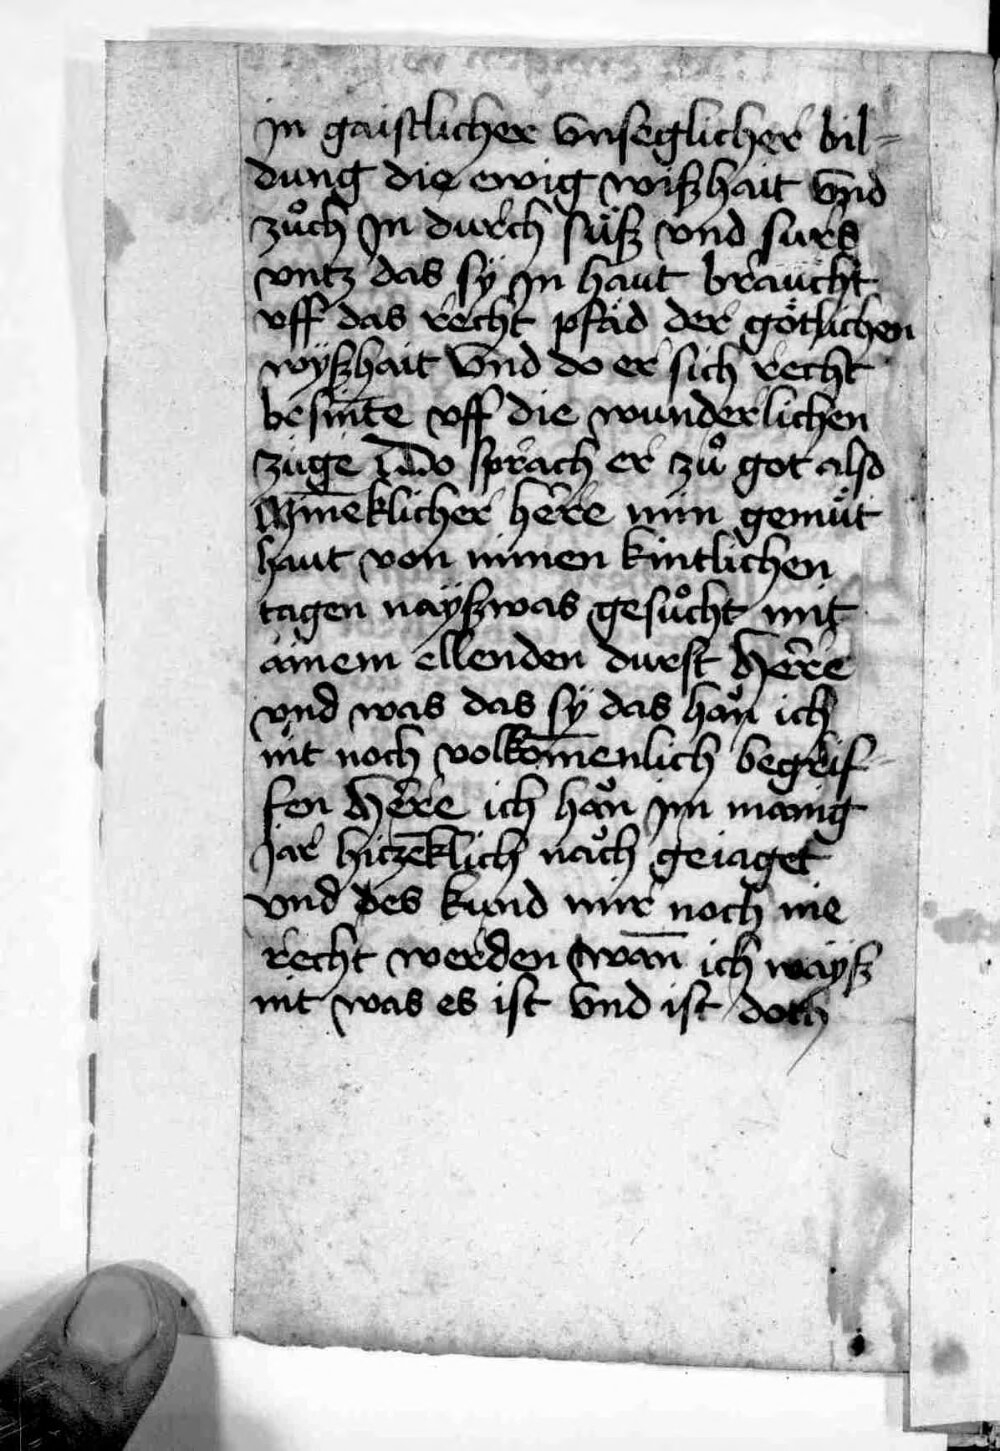 in gaistlicher vnseglicher bil-
dung die ewig wißhait vnd
zuͦch in durch suͤß vnd surs
vntz das sÿ in haut braucht
vff das recht pfad der goͤtlichen
wÿßhait vnd do er sich recht
besinte vff die wunderlichen
zuge do sprach er zuͦ got also
Mineklicher herre min gemuͤt
haut von minen kintlichen
tagen naÿßwas gesuͦcht mit
ainem ellenden durst Herre
vnd was das sÿ das hoͧn ich
nit noch volkom̅enlich begrif-
fen Herre ich hoͧn im manig
jar hitzeklich nauͦch geiaget
vnd des kund mir noch nie
recht werden wan̅ ich waÿß
nit was es ist vnd ist doch